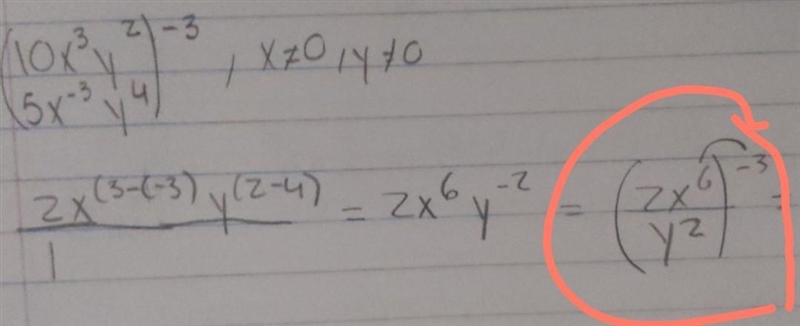 (10x³y²
5x⁻³y⁴)⁻³, x≠0, y≠0
2x^(3-(-3)) y^(2-4) / 1 = 2x⁶y⁻² = (2x⁶ / y²)⁻³ =